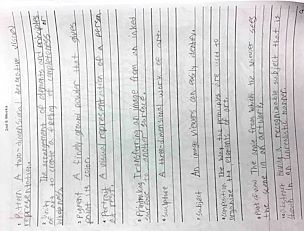 2nd 6 Weeks
• Pattern A two-dimensional decorative visual
representation.
The arrangement of elements and principles
to create a feeling of completeness or
wholeness.
• Pigment A finely ground powder that gives
paint its color.
• Portrait A visual representation of a person
• Printmaking Transferring an image from an inked
surface to another surface.
• Sculpture A three-dimensional work of art.
• Subject An image viewers can easily identify.
• Composition The way the principles are used to
organize the elements of art.
• Point of View The angle from which the viewer sees
the scene in an artwork.
Having a recognizable subject that is
done in an manner